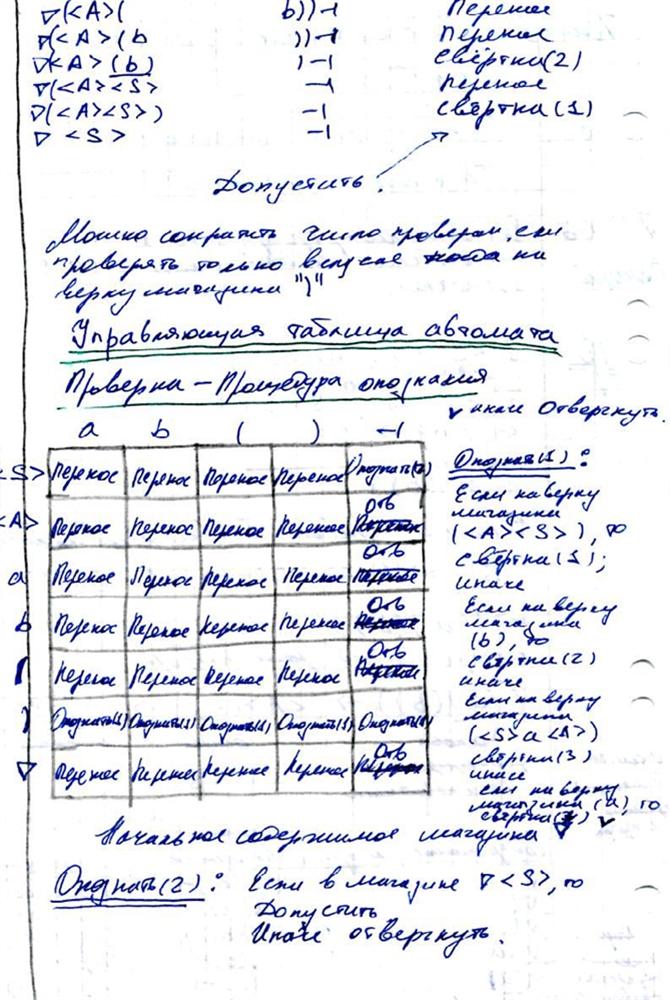 ▽(<A>( b))⊣ Перенос
▽(<A>(b ))⊣ Перенос
▽(<A>(b) )⊣ Свёртка(2)
▽(<A><S> )⊣ Перенос
▽(<A><S>) ⊣ Свёртка(1)
▽ <S> ⊣
Допустить.
Можно сократить число проверок, если
проверять только в случае когда на
верху магазина ")"
Управляющая таблица автомата
Проверка – Процедура опознания
a b ( ) ⊣
<S> Перенос Перенос Перенос Перенос Опознать(2)
<A> Перенос Перенос Перенос Перенос Отв
a Перенос Перенос Перенос Перенос Отв
b Перенос Перенос Перенос Перенос Отв
( Перенос Перенос Перенос Перенос Отв
) Опознать(1) Опознать(1) Опознать(1) Опознать(1) Опознать(1)
▽ Перенос Перенос Перенос Перенос Отв
∨ иначе Отвергнуть.
Опознать(1):
Если на верху
магазина
(<A><S>), то
Свёртка(1);
иначе
Если на верху
магазина
(b), то
Свёртка(2)
иначе
Если на верху
магазина
(<S>a<A>)
свёртка(3)
иначе
если на верху
магазина (a), то
свёртка(4) ∨
Начальное содержимое магазина ▽
Опознать(2): Если в магазине ▽<S>, то
Допустить
Иначе отвергнуть.